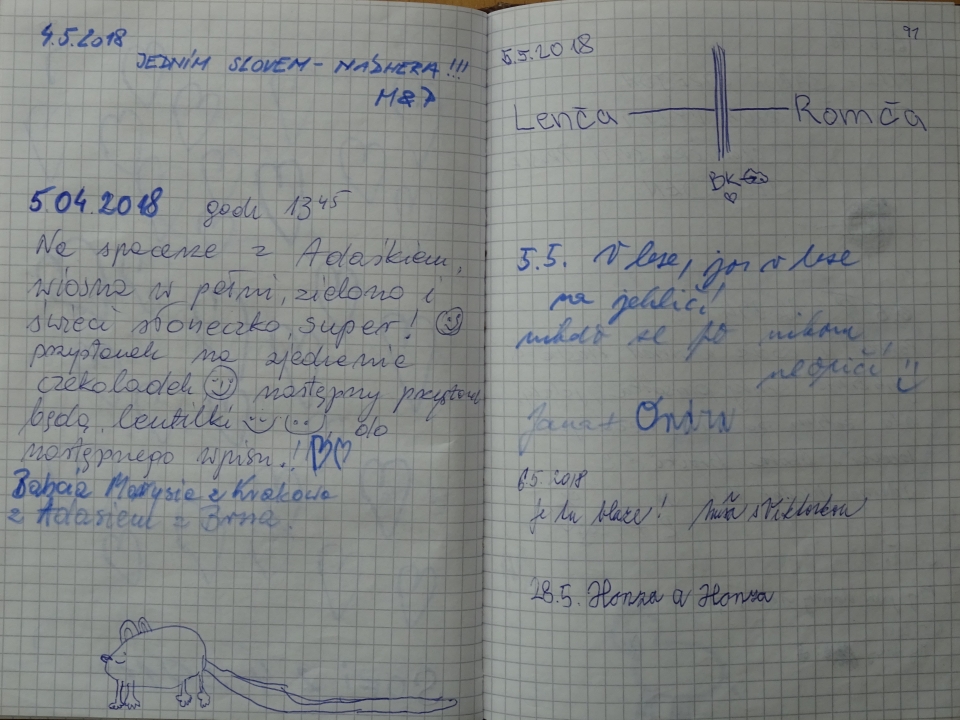 4.5.2018
JEDNÍM SLOVEM - NÁDHERA!!!
M&P
5.04.2018 godz 13 45
Na spacerze z Adaśkiem,
wiosna w pełni, zielono i
świeci słoneczko, super!
przystanek na zjedzenie
czekoladek następny przystanek
będą lentilki do
następnego wpisu.!
Babcia Marysia z Krakowa
z Adasiem z Brna.
91
5.5.2018
Lenča Romča
BK
5.5. V lese, jo v lese
na jehličí!
nikdo se po nikom
neopičí!
Jana + Ondra
6.5.2018
je tu blaze! s Viktorkou
28.5. Honza a Honza